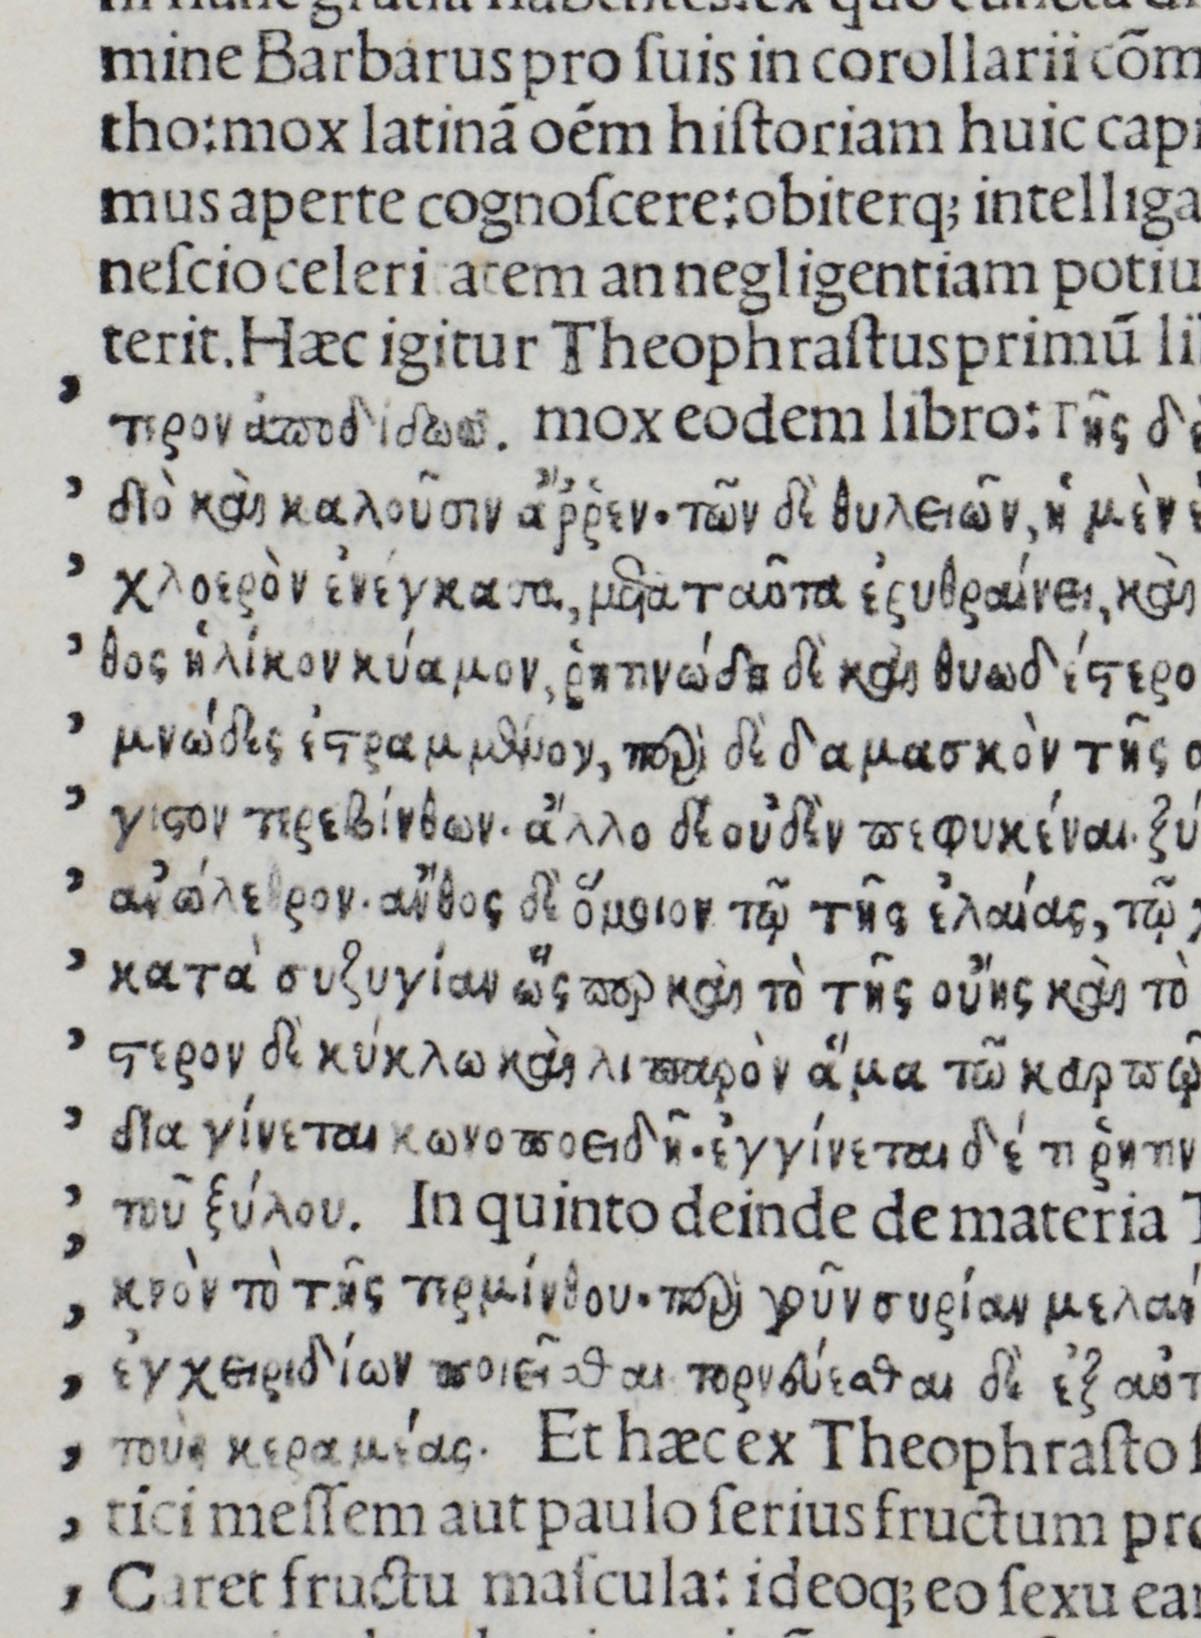 mine Barbarus pro ſuis in corollarii cõm
tho:mox latinã oẽm hiſtoriam huic capi
mus aperte cognoſcere:obiterq; intelliga
neſcio celeri atem an negligentiam potiu
terit. Hæc igitur Theophraſtus primũ li
τερον ἀποδίδωσι. mox eodem libro: Γῆς δὲ
διὸ καὶ καλοῦσιν ἄῤῥεν· τῶν δὲ θυλειῶν, ἡ μὲν
χλοερὸν ἐνέγκασα, μετὰ ταῦτα ἐρυθραίνει, καὶ
θος ἡλίκον κύαμον, ῥητινώδη δὲ καὶ θυωδέστερο
μνώδες ἐστραμμένον, περὶ δὲ δαμασκὸν τῆς
γιστον τερεβίνθων· ἄλλο δὲ οὐδὲν πεφυκέναι· ξύ
ανώλεθρον· ἄνθος δὲ ὅμοιον τῷ τῆς ἐλαίας, τῷ
κατὰ συζυγίαν ὥσπερ καὶ τὸ τῆς οὔης καὶ τὸ
στερον δὲ κύκλω καὶ λιπαρὸν ἅμα τῶ καρπῷ
δια γίνεται κωνοποειδῆ· ἐγγίνεται δέ τι ῥητιν
τοῦ ξύλου. In quinto deinde de materia T
κρὸν τὸ τῆς τερμίνθου· περὶ γοῦν συρίαν μελαι
ἐγχειριδίων ποιεῖσθαι τορνεύεσθαι δὲ ἐξ αὐτ
τοὺς κεραμέας. Et hæc ex Theophraſto ſ
tici meſſem aut paulo ſerius fructum pro
Caret fructu maſcula: ideoq; eo ſexu ear